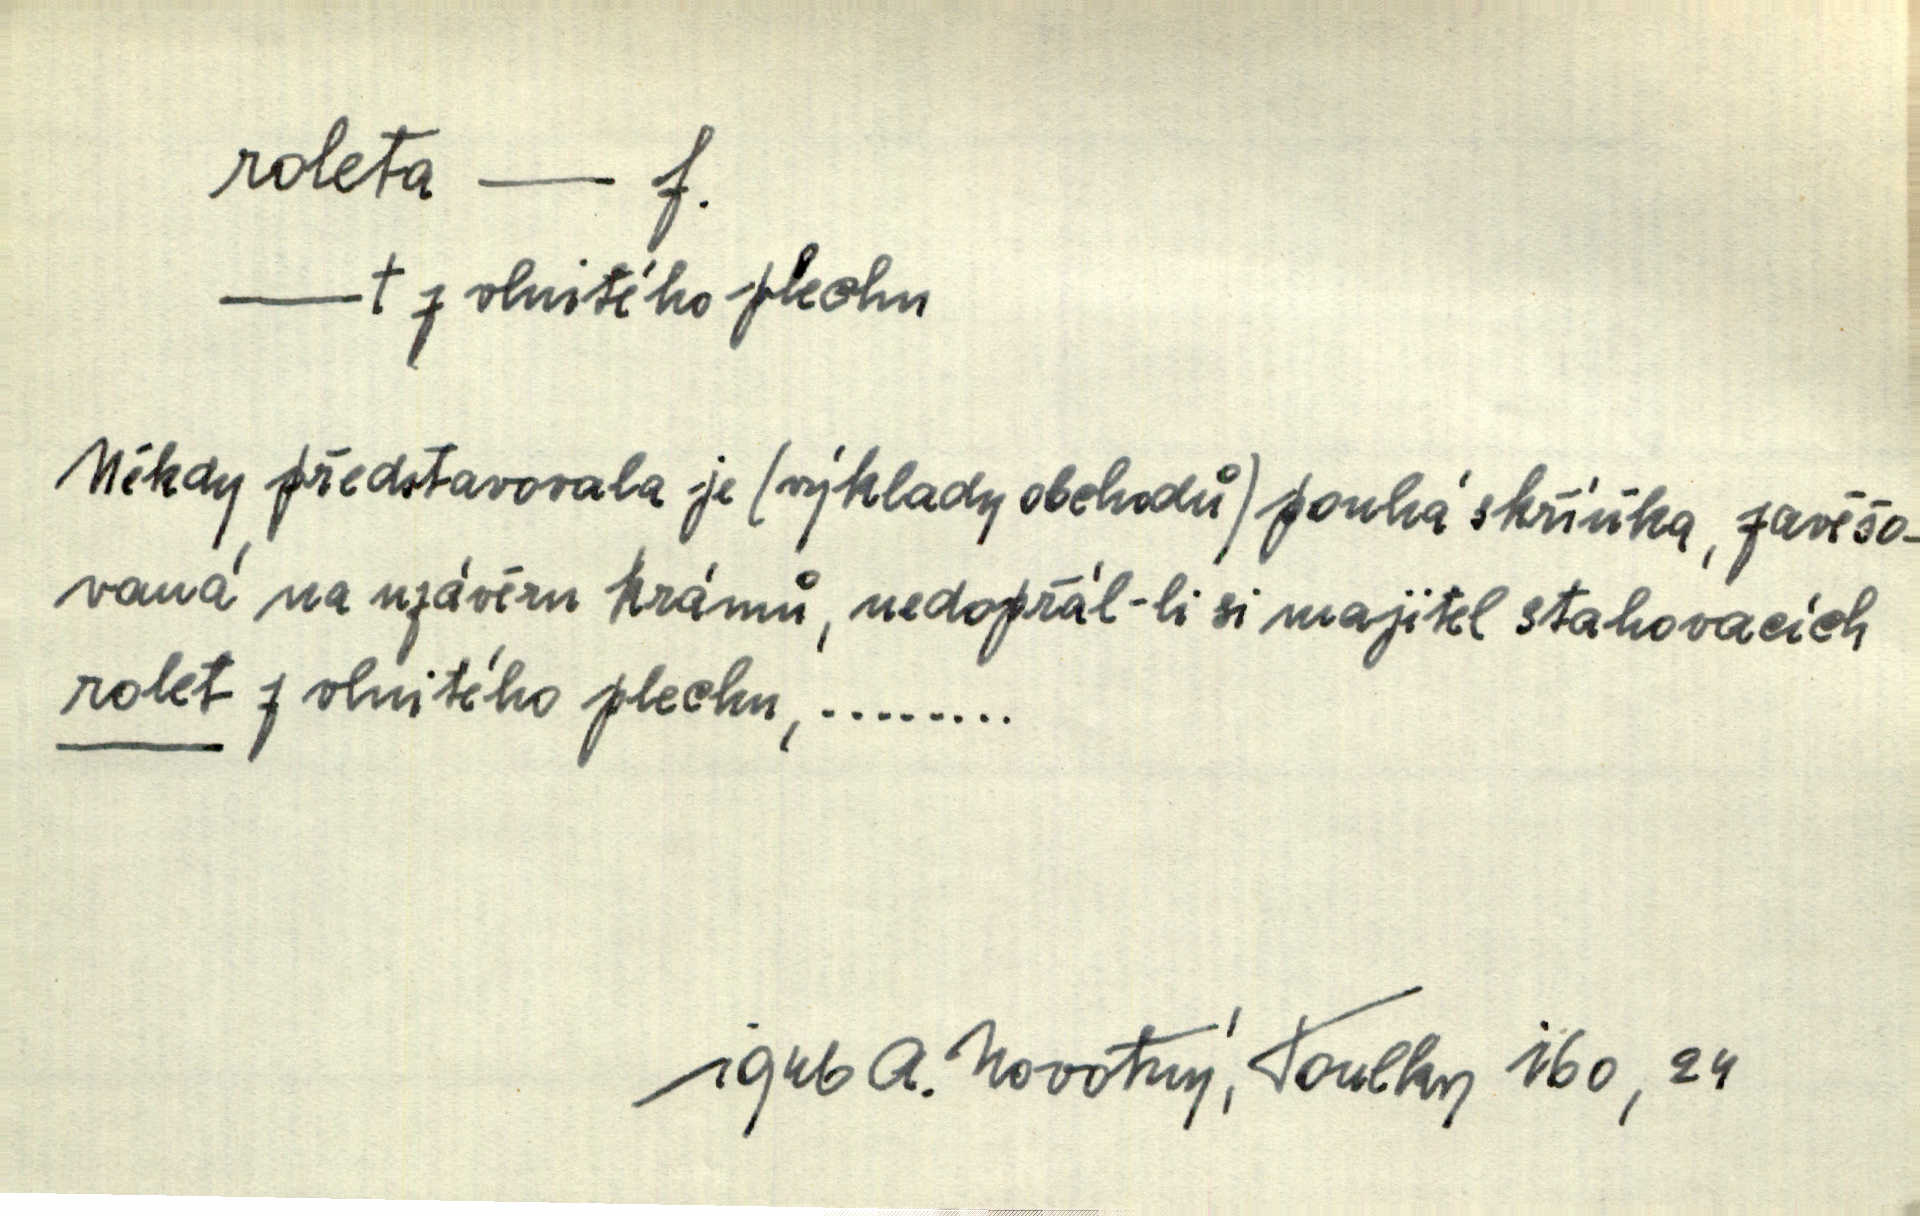 roleta — f.
—t z vlnitého plechu
Někdy představovala je (výklady obchodů) pouhá skříňka, zavěšo-
vaná na uzávěru krámů, nedopřál-li si majitel stahovacích
rolet z vlnitého plechu, .........
1946 A. Novotný, Toulky 160, 24